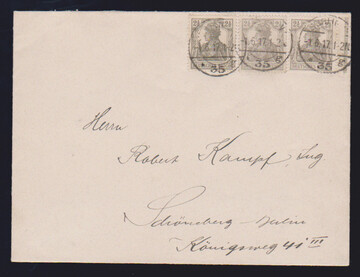 2½ 2½ 2½
-1.6.17.1-2N.
* 35 * * 35 *
Herrn
Robert Kampf, Ing.
Schöneberg - Berlin
Königsweg 41 III